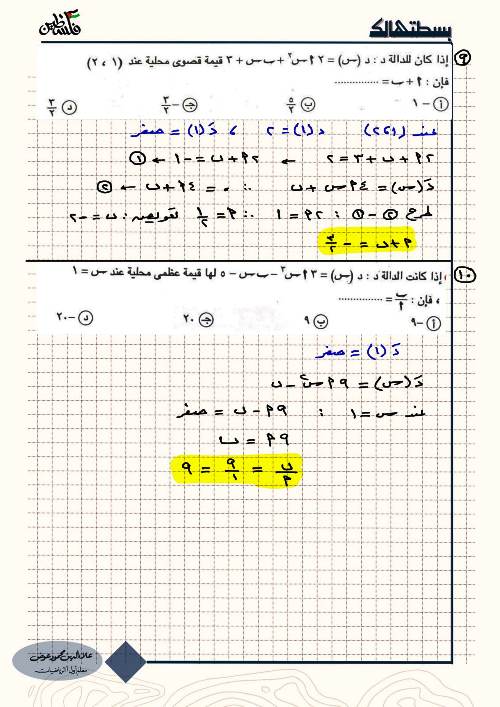 بسطتهالك
فلسطين
٩ إذا كان للدالة د : د (س) = ٢ ا س٢ + ب س + ٣ قيمة قصوى محلية عند (١ ، ٢)
فإن : ا + ب = ...............
أ - ١ ب ٥/٢ ج - ٣/٢ د ٣/٢
عند (١،٢) د(١) = ٢ ، دَ(١) = صفر
٢ا + ب + ٣ = ٢ ← ٢ا + ب = -١ ← ①
دَ(س) = ٤ا س + ب ∴ ٠ = ٤ا + ب ← ②
بطرح ② - ① : ٢ا = ١ ∴ ا = ١/٢ بتعويض : ب = -٢
ا + ب = - ٣/٢
١٠ إذا كانت الدالة د : د (س) = ٣ ا س٣ - ب س - ٥ لها قيمة عظمى محلية عند س = ١
، فإن : ب/ا = ...............
أ - ٩ ب ٩ ج ٢٠ د - ٢٠
دَ(١) = صفر
دَ(س) = ٩ا س٢ - ب
عند س = ١ : ٩ا - ب = صفر
٩ا = ب
ب/ا = ٩/١ = ٩
علاء الدين محمود عوض
معلم أول الرياضيات